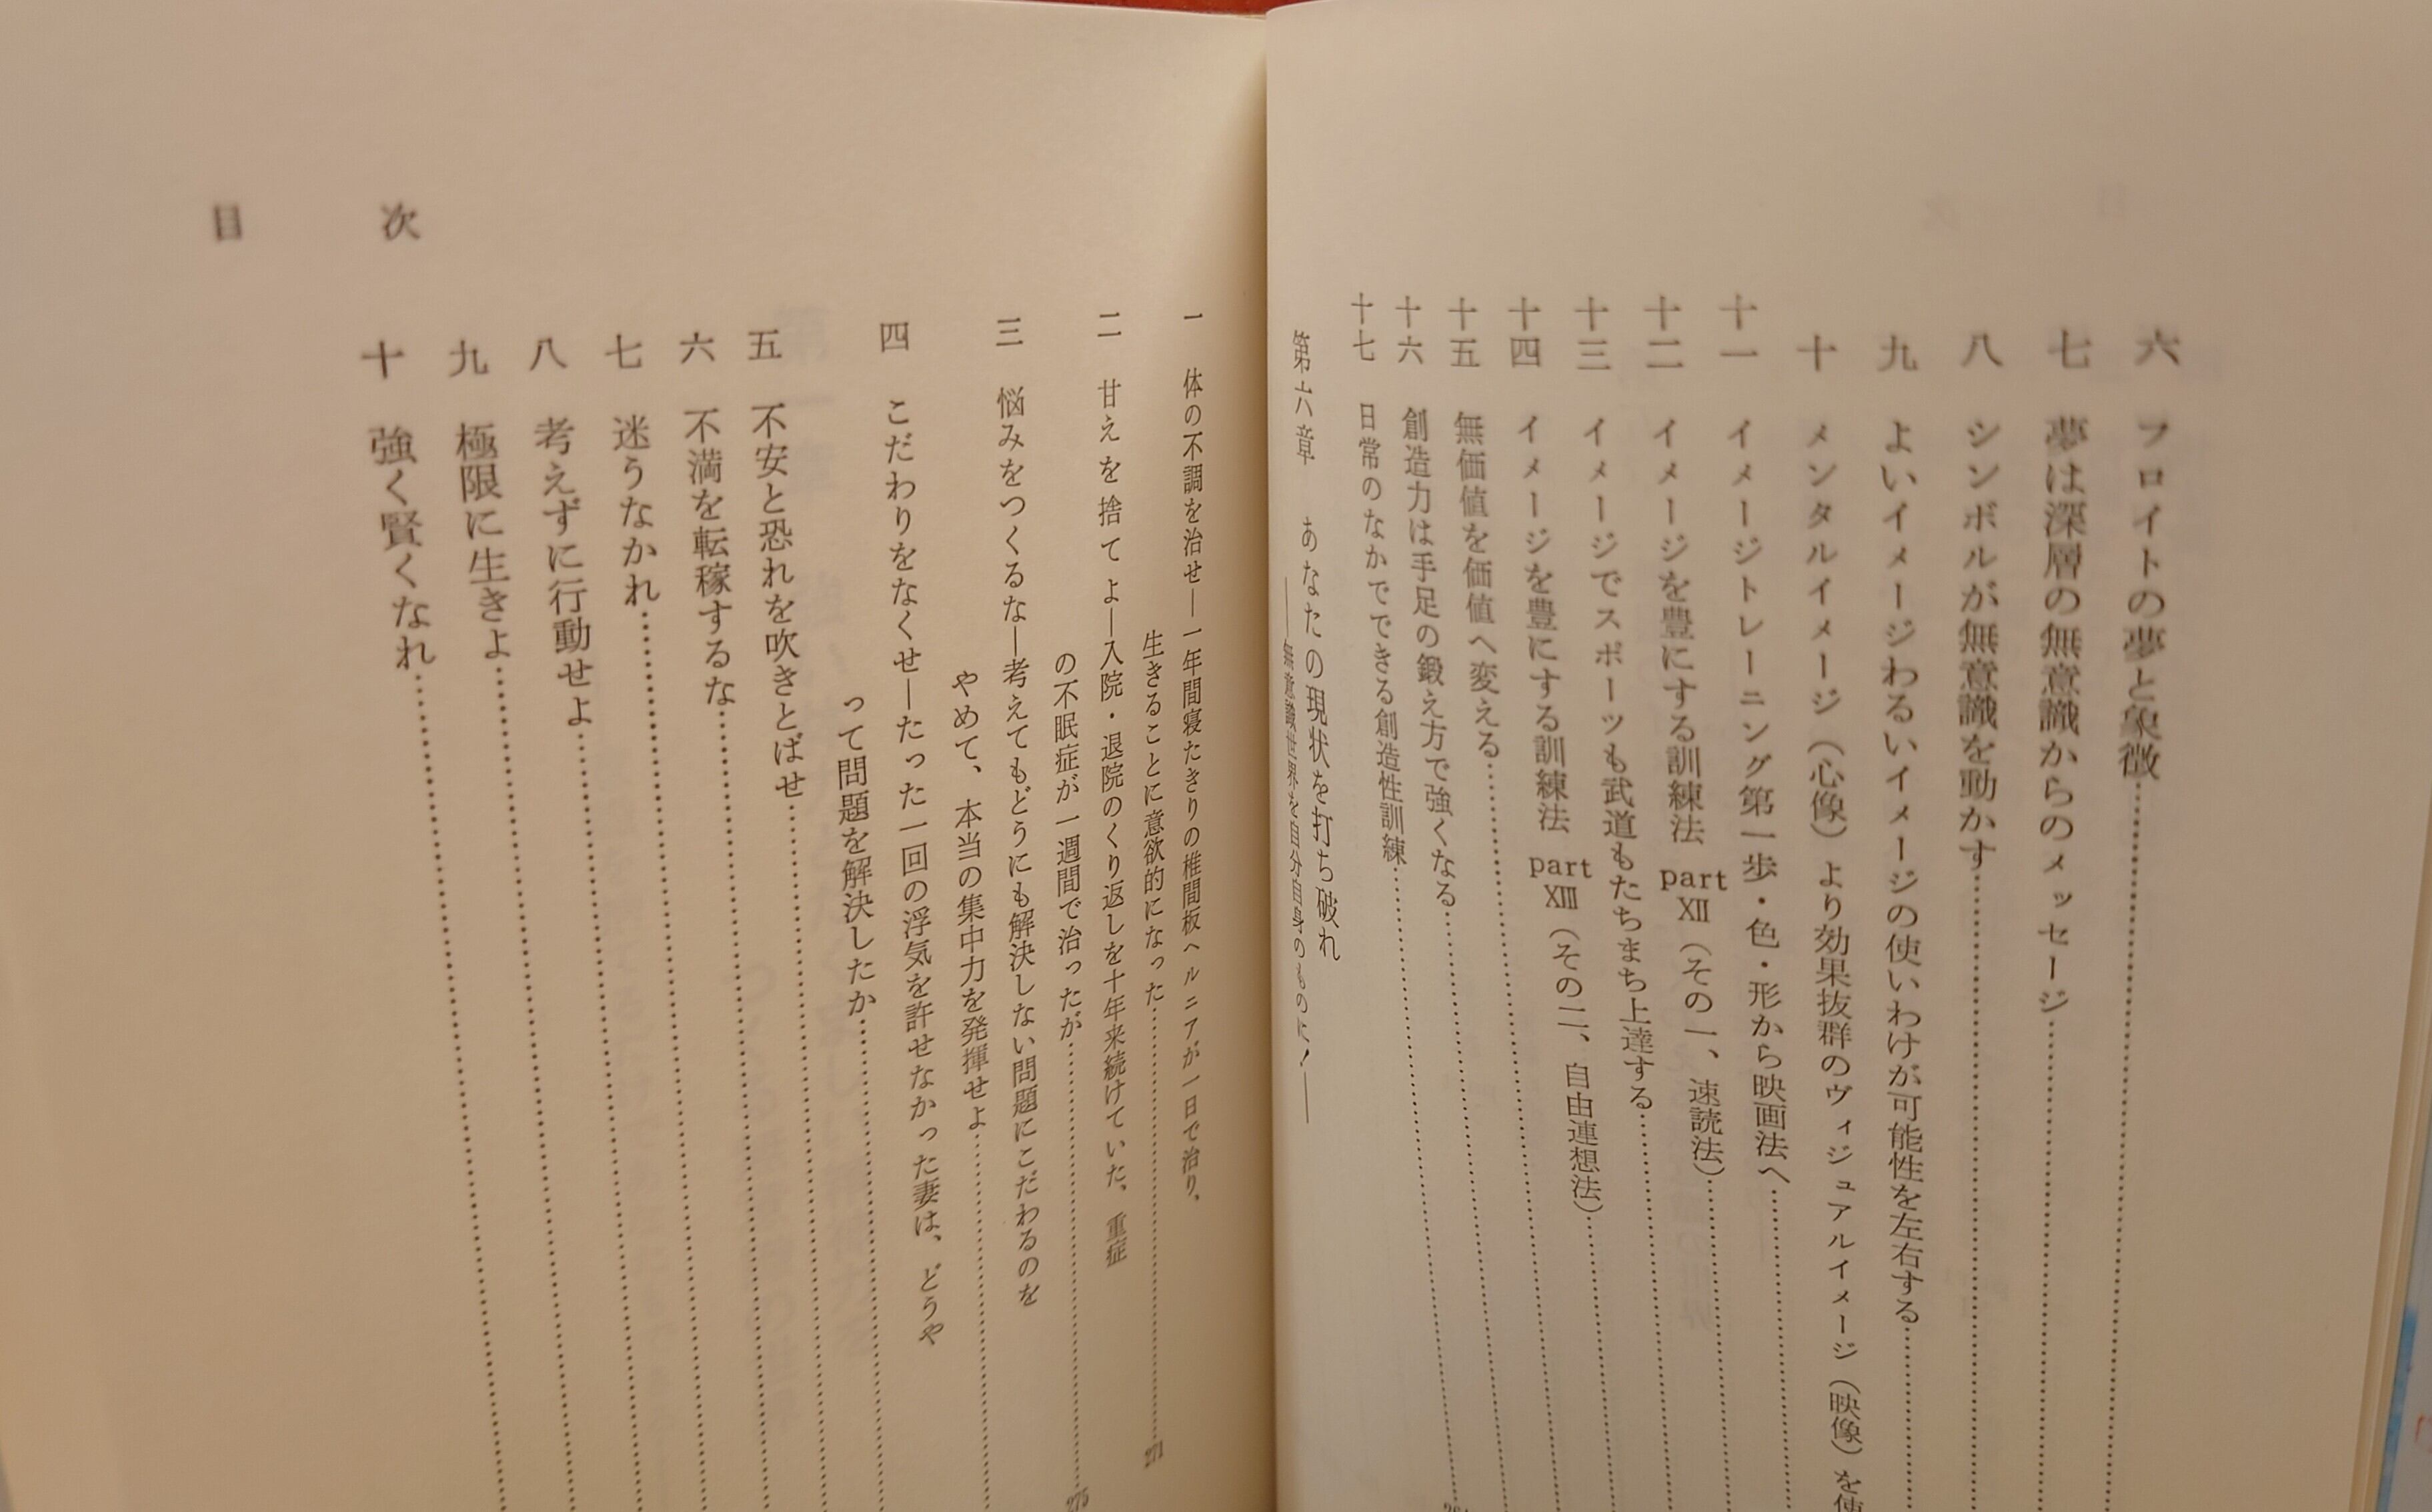 六 フロイトの夢と象徴
七 夢は深層の無意識からのメッセージ
八 シンボルが無意識を動かす
九 よいイメージわるいイメージの使いわけが可能性を左右する
十 メンタルイメージ（心像）より効果抜群のヴィジュアルイメージ（映像）を使
十一 イメージトレーニング第一歩・色・形から映画法へ
十二 イメージを豊にする訓練法 part XII（その一、速読法）
十三 イメージでスポーツも武道もたちまち上達する
十四 イメージを豊にする訓練法 part XIII（その二、自由連想法）
十五 無価値を価値へ変える
十六 創造力は手足の鍛え方で強くなる
十七 日常のなかでできる創造性訓練
第六章 あなたの現状を打ち破れ
――無意識世界を自分自身のものに！――
一 体の不調を治せ―一年間寝たきりの椎間板ヘルニアが一日で治り、
生きることに意欲的になった 271
二 甘えを捨てよ―入院・退院のくり返しを十年来続けていた、重症
の不眠症が一週間で治ったが 275
三 悩みをつくるな―考えてもどうにも解決しない問題にこだわるのを
やめて、本当の集中力を発揮せよ
四 こだわりをなくせ―たった一回の浮気を許せなかった妻は、どうや
って問題を解決したか
五 不安と恐れを吹きとばせ
六 不満を転稼するな
七 迷うなかれ
八 考えずに行動せよ
九 極限に生きよ
十 強く賢くなれ
目 次